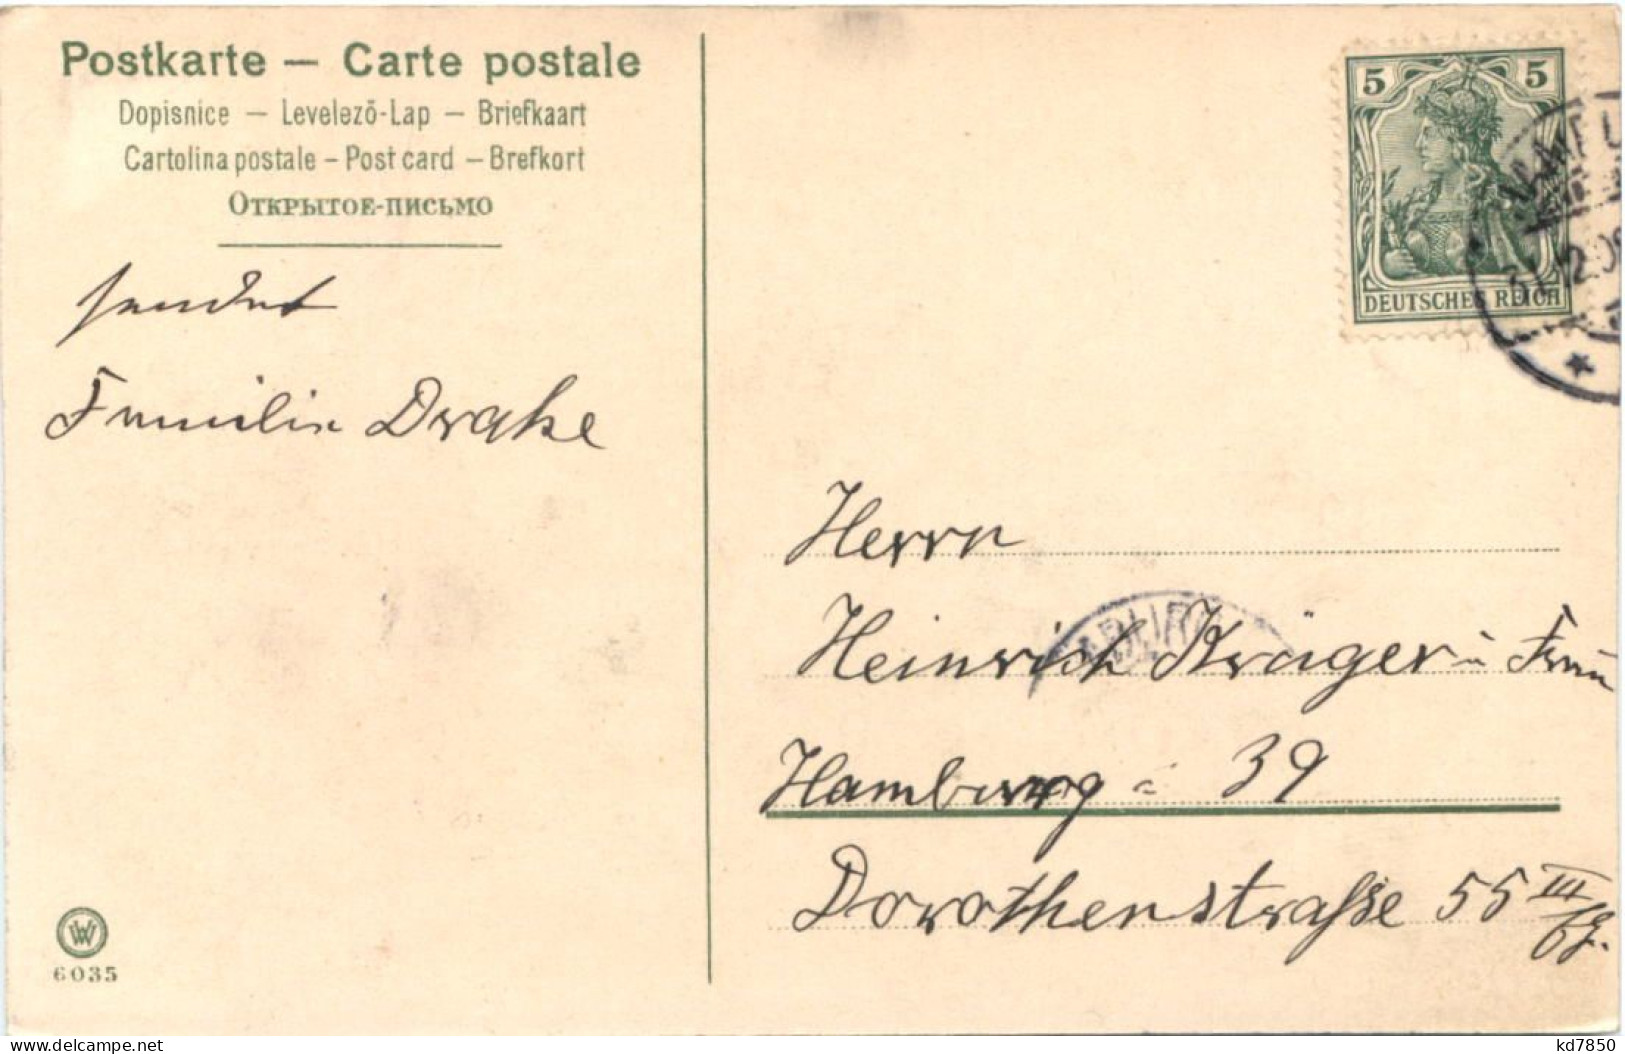 Postkarte — Carte postale
Dopisnice — Levelező-Lap — Briefkaart
Cartolina postale – Post card – Brefkort
Открытое-письмо
sendet
Familie Drake
5 5
DEUTSCHES REICH
31.12.09
Herrn
Heinrich Kräger u Frau
Hamburg 39
Dorothenstraße 55 III
6035
delcampe.net
kd7850